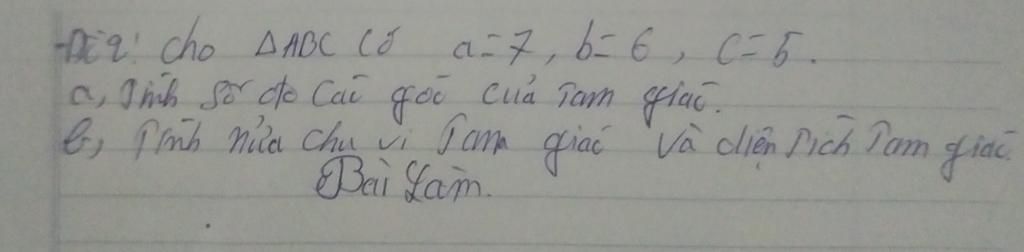 Đề 2: Cho ΔABC Có a=7, b=6, c=5.
a, Tính số đo các góc của Tam giác.
b, Tính nửa chu vi Tam giác và diện Tích Tam giác.
Bài Làm.